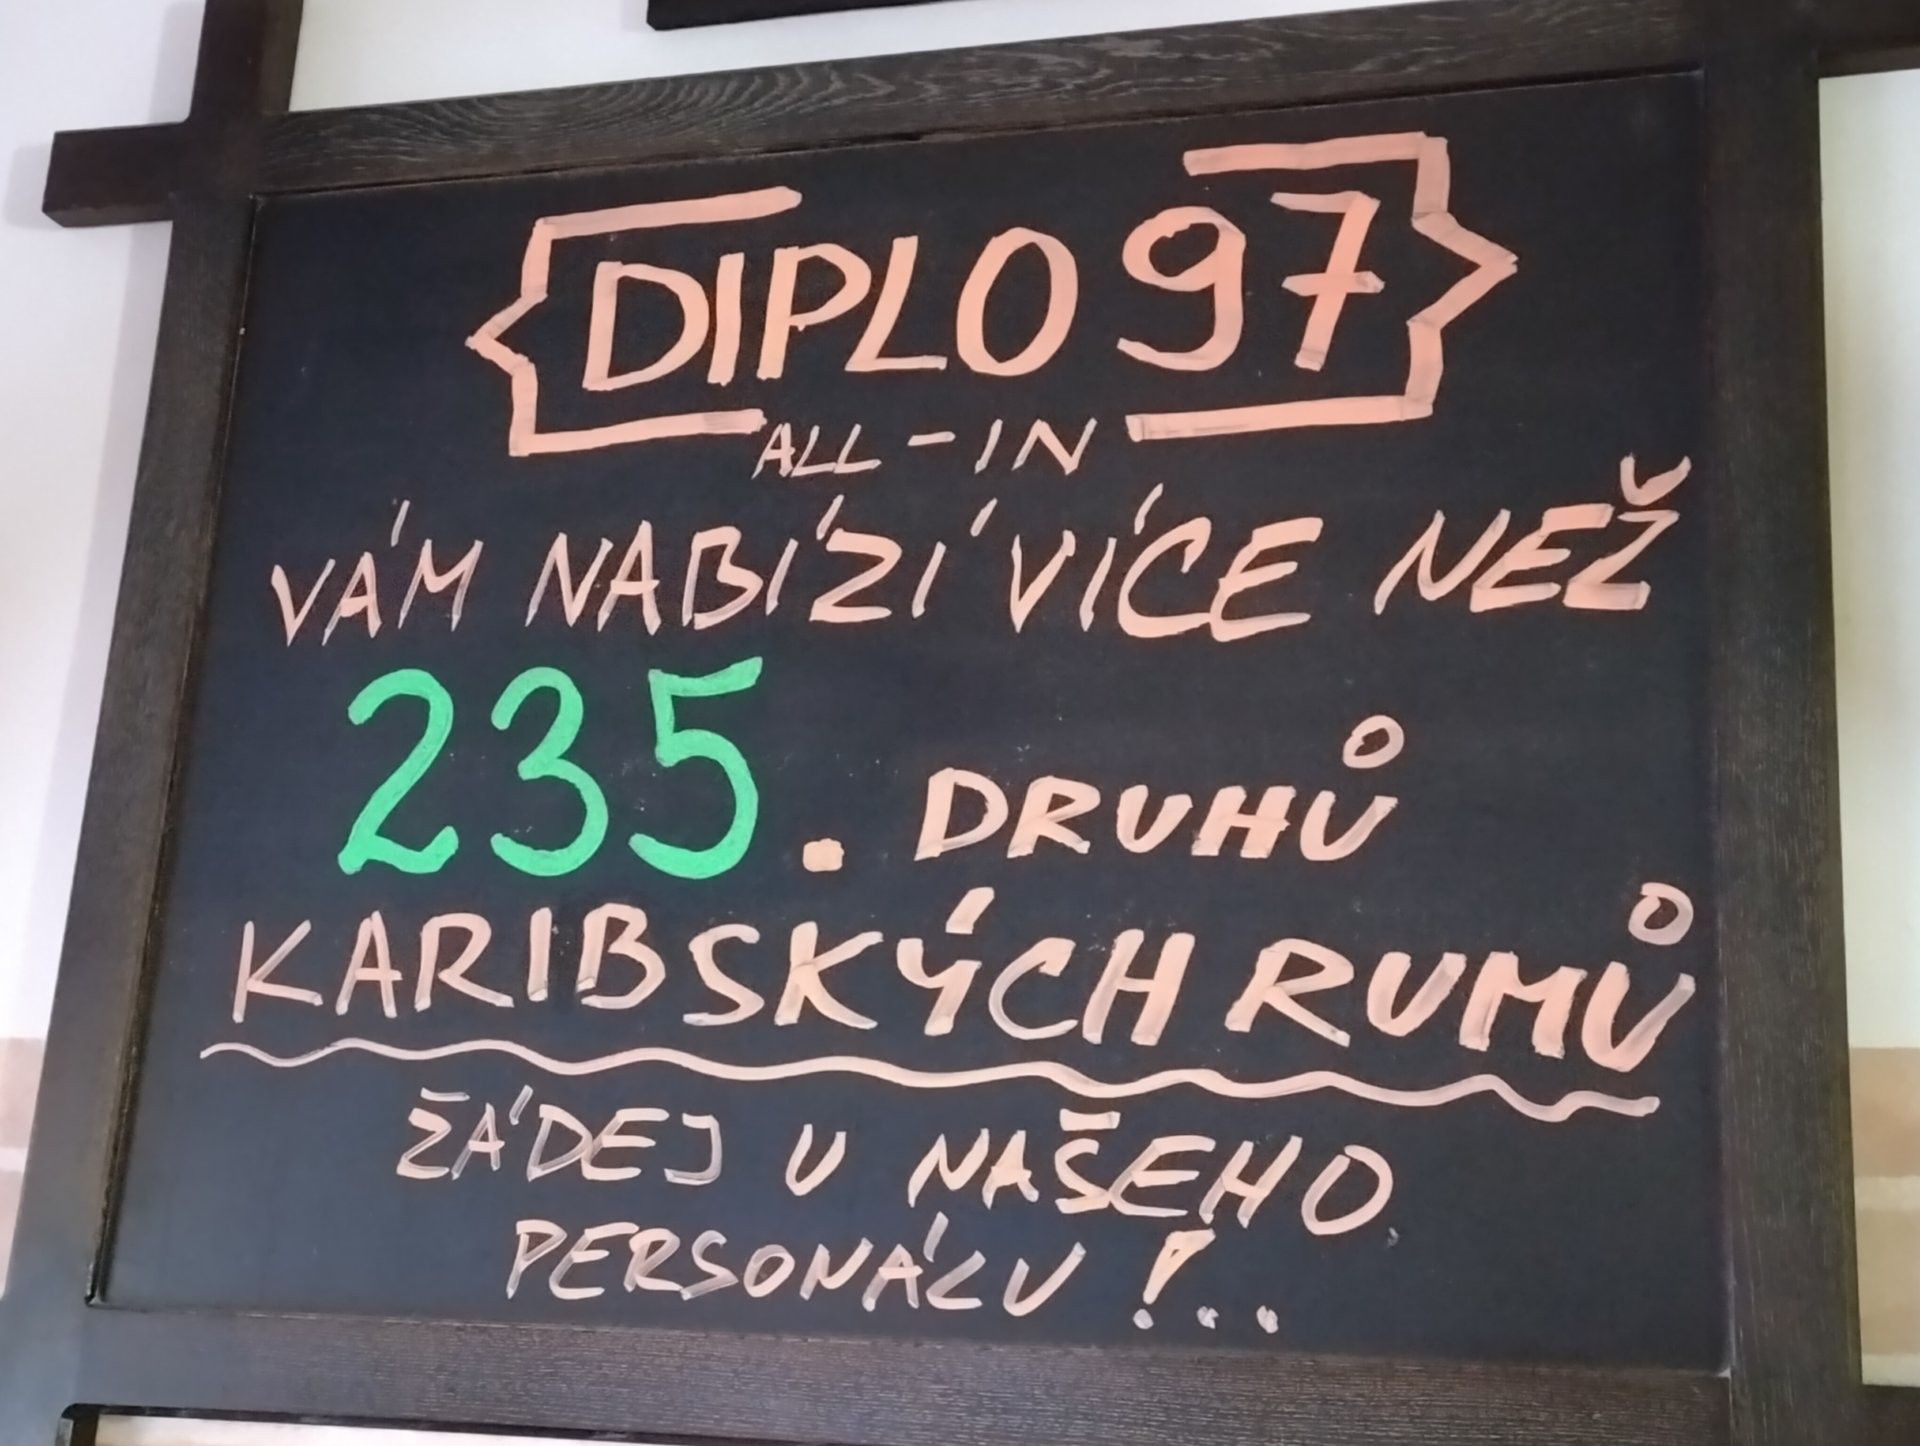 DIPLO 97
ALL-IN
VÁM NABÍZÍ VÍCE NEŽ
235. DRUHŮ
KARIBSKÝCH RUMŮ
ŽÁDEJ U NAŠEHO
PERSONÁLU!..